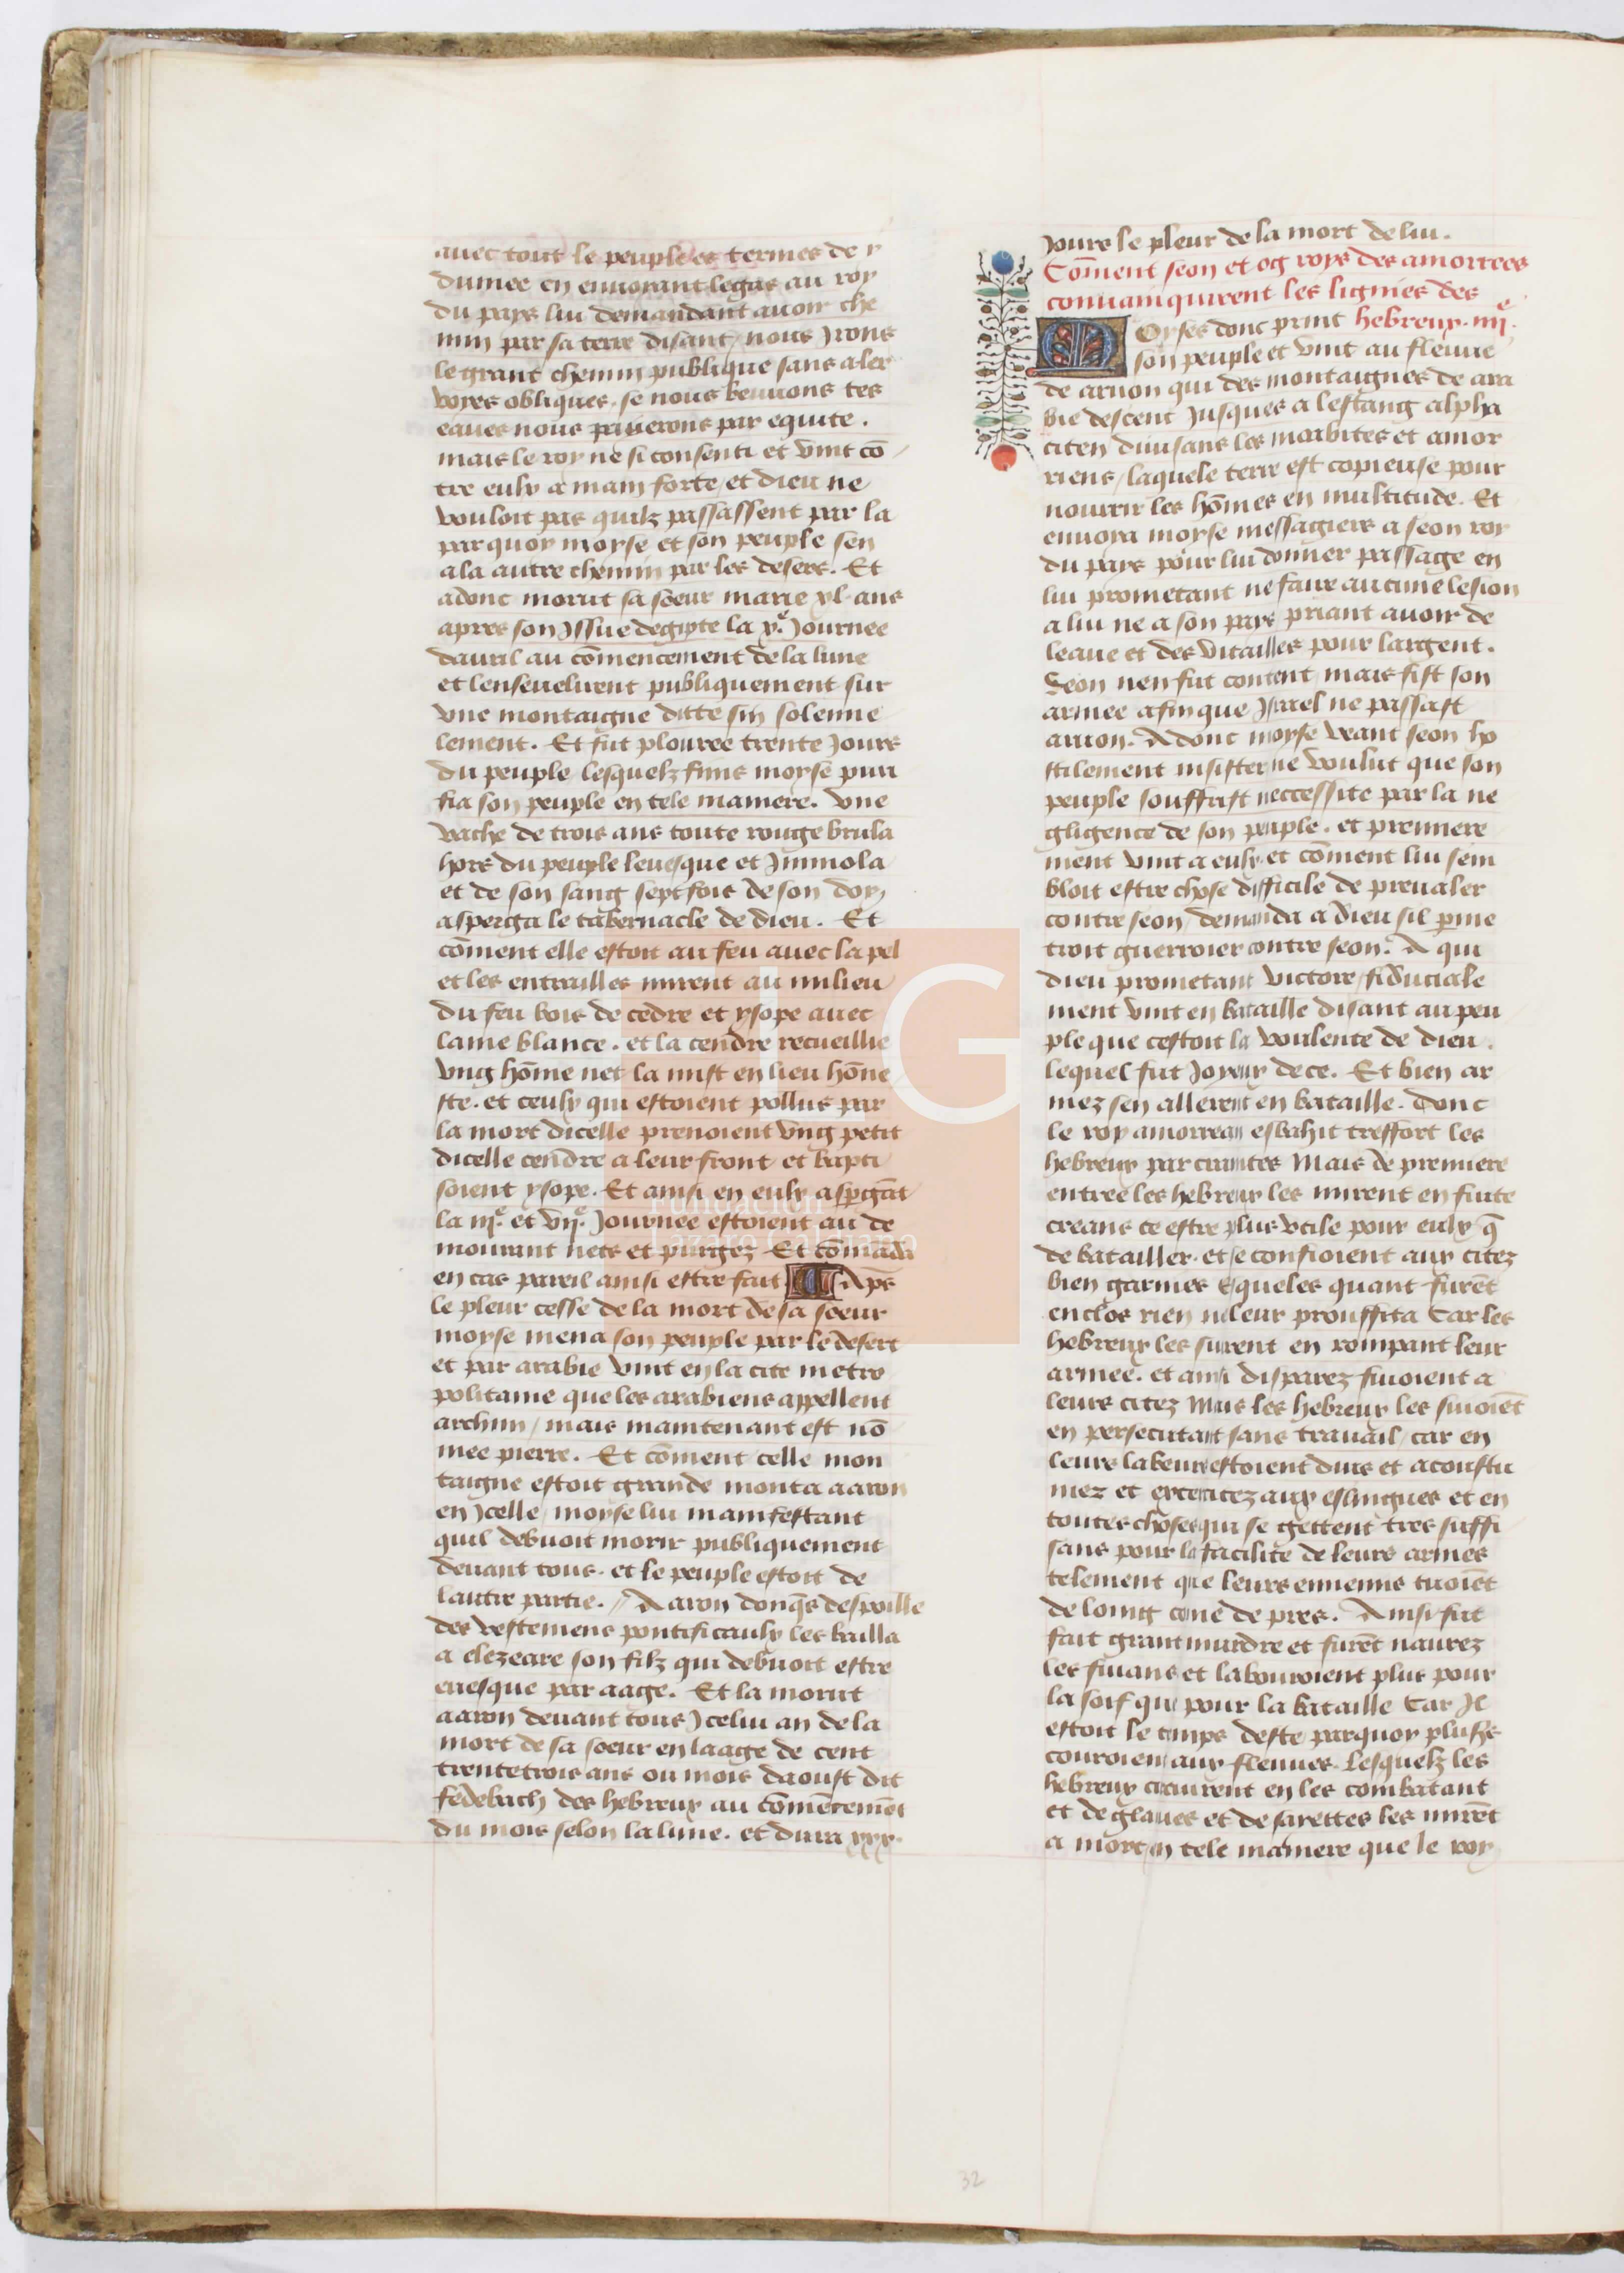 auec tout le peuple es termes de y
dumee en enuoyant legas au roy
du pays lui demandant auoir che
min par sa terre disant / nous Jrons
le grant chemin publique sans aler
voyes obliques. se nous beuuons tes
eaues nous paierons par equite.
mais le roy ne si consenti et vint cō
tre eulx a main forte / et dieu ne
vouloit pas quilz passassent par la
parquoy moyse et son peuple sen
ala autre chemin par les desers. Et
adonc morut sa soeur marie xl. ans
apres son Jssue degipte la x.e Journee
dauril au cōmencement de la lune
et lenseuelirent publiquement sur
vne montaigne ditte sin solenne
lement. Et fut plouree trente Jours
du peuple / lesquelz finis moyse puri
fia son peuple en tele maniere. Vne
vache de trois ans toute rouge brula
hors du peuple leuesque et Jmmola
et de son sang sept fois de son doy
asperga le tabernacle de dieu. Et
cōment elle estoit au feu auec la pel
et les entrailles mirent au milieu
du feu bois de cedre et ysope auec
laine blance. et la cendre recueillie
vng hōme net la mist en lieu hōne
ste. et ceulx qui estoient pollus par
la mort dicelle prenoient vng petit
dicelle cendre a leur front et bapti
soient ysope. Et ainsi en eulx aspgāt
la iij.e et vij.e Journee estoient au de
mourant nets et purgez Et cōmāda
en cas pareil ainsi estre fait Aps
le pleur cesse de la mort de sa soeur
moyse mena son peuple par le desert
et par arabie vint en la cite metro
politaine que les arabiens appellent
archim / mais maintenant est nō
mee pierre. Et cōment celle mon
taigne estoit grande monta aaron
en Jcelle / moyse lui manifestant
quil debuoit morir publiquement
deuant tous. et le peuple estoit de
lautre partie. // Aaron donqs despoille
des vestemens pontificaulx les bailla
a elezeare son filz qui debuoit estre
euesque par aage. Et la morut
aaron deuant tous Jcelui an de la
mort de sa soeur en laage de cent
trentetrois ans ou mois daoust dit
fedebach des hebreux au cōmēcemēt
du mois selon la lune. et dura xxx.
Jours le pleur de la mort de lui.
Cōment seon et og roys des amorrees
conuainquirent les lignies des
hebreux. iiij.e
Moyses donc print
son peuple et vint au fleuue
de arnon qui des montaignes de ara
bie descent Jusques a lestang alpha
citen diuisans les moabites et amor
riens / laquele terre est copieuse pour
nourrir les hōmes en multitude. Et
enuoya moyse messagiers a seon roy
du pays pour lui donner passage en
lui prometant ne faire aucune lesion
a lui ne a son pays priant auoir de
leaue et des vitailles pour largent.
Seon nen fut content mais fist son
armee afin que Jsrael ne passast
arnon. Adonc moyse veant seon ho
stilement insister ne voulut que son
peuple souffrist neccessite par la ne
gligence de son peuple. et premiere
ment vint a eulx et cōment lui sem
bloit estre chose difficile de preualer
contre seon / demanda a dieu sil pme
troit guerroier contre seon. A qui
dieu prometant victore / fiduciale
ment vint en bataille disant au peu
ple que cestoit la voulente de dieu.
lequel fut Joyeux de ce. Et bien ar
mez sen allerent en bataille. Donc
le roy amorrean esbahit treffort les
hebreux par craintes Mais de premiere
entree les hebreux les mirent en fuite
creans ce estre plus vtile pour eulx q̄
de batailler. et se confioient aux citez
bien garnies esqueles quant furēt
enclos rien ne leur prouffita Car les
hebreux les suirent en rompant leur
armee. et ainsi disparez fuioient a
leurs citez Mais les hebreux les suioiēt
en persecutant sans trauail / car en
leurs labeurs estoient durs et acoustu
mez et excercitez aux eslingues et en
toutes choses qui se gettent tres suffi
sans pour la facilite de leurs armes
telement que leurs ennemis tuoiēt
de loing cōme de pres. Ainsi fut
fait grant murdre et furēt naurez
les fuians et labouroient plus pour
la soif que pour la bataille Car Jl
estoit le temps deste parquoy pluss
couroient aux fleuues. Lesquelz les
hebreux encurrent en les combatant
et de glaues et de sarettes les mirēt
a mort en tele maniere que le roy
32
FLG
Fundación
Lázaro Galdiano